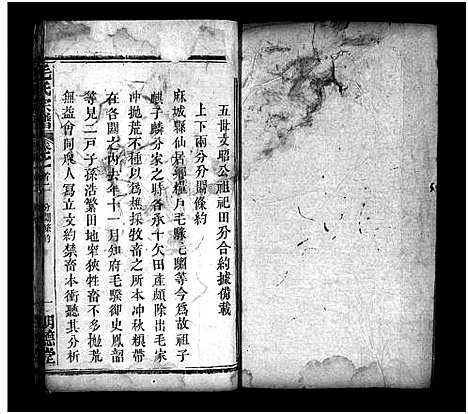 五世文昭公祖祀田分合約據備載
上下兩分分關條約
麻城縣仙居鄉糧戶毛騄毛騮等今為故祖子
麒子麟分家之時各承十欠田產頗除出毛家
冲拋荒不種以為樵採牧畜之所本冲秋糧帶
在各關之內去年十一月知府毛騤御史鳳韶
等見二戶子孫浩繁田地窄狹牲畜不多拋荒
無益會同眾人寫立文約禁畜本衝聽其分析
毛氏宗譜
卷之首二
分關條約
一
明德堂